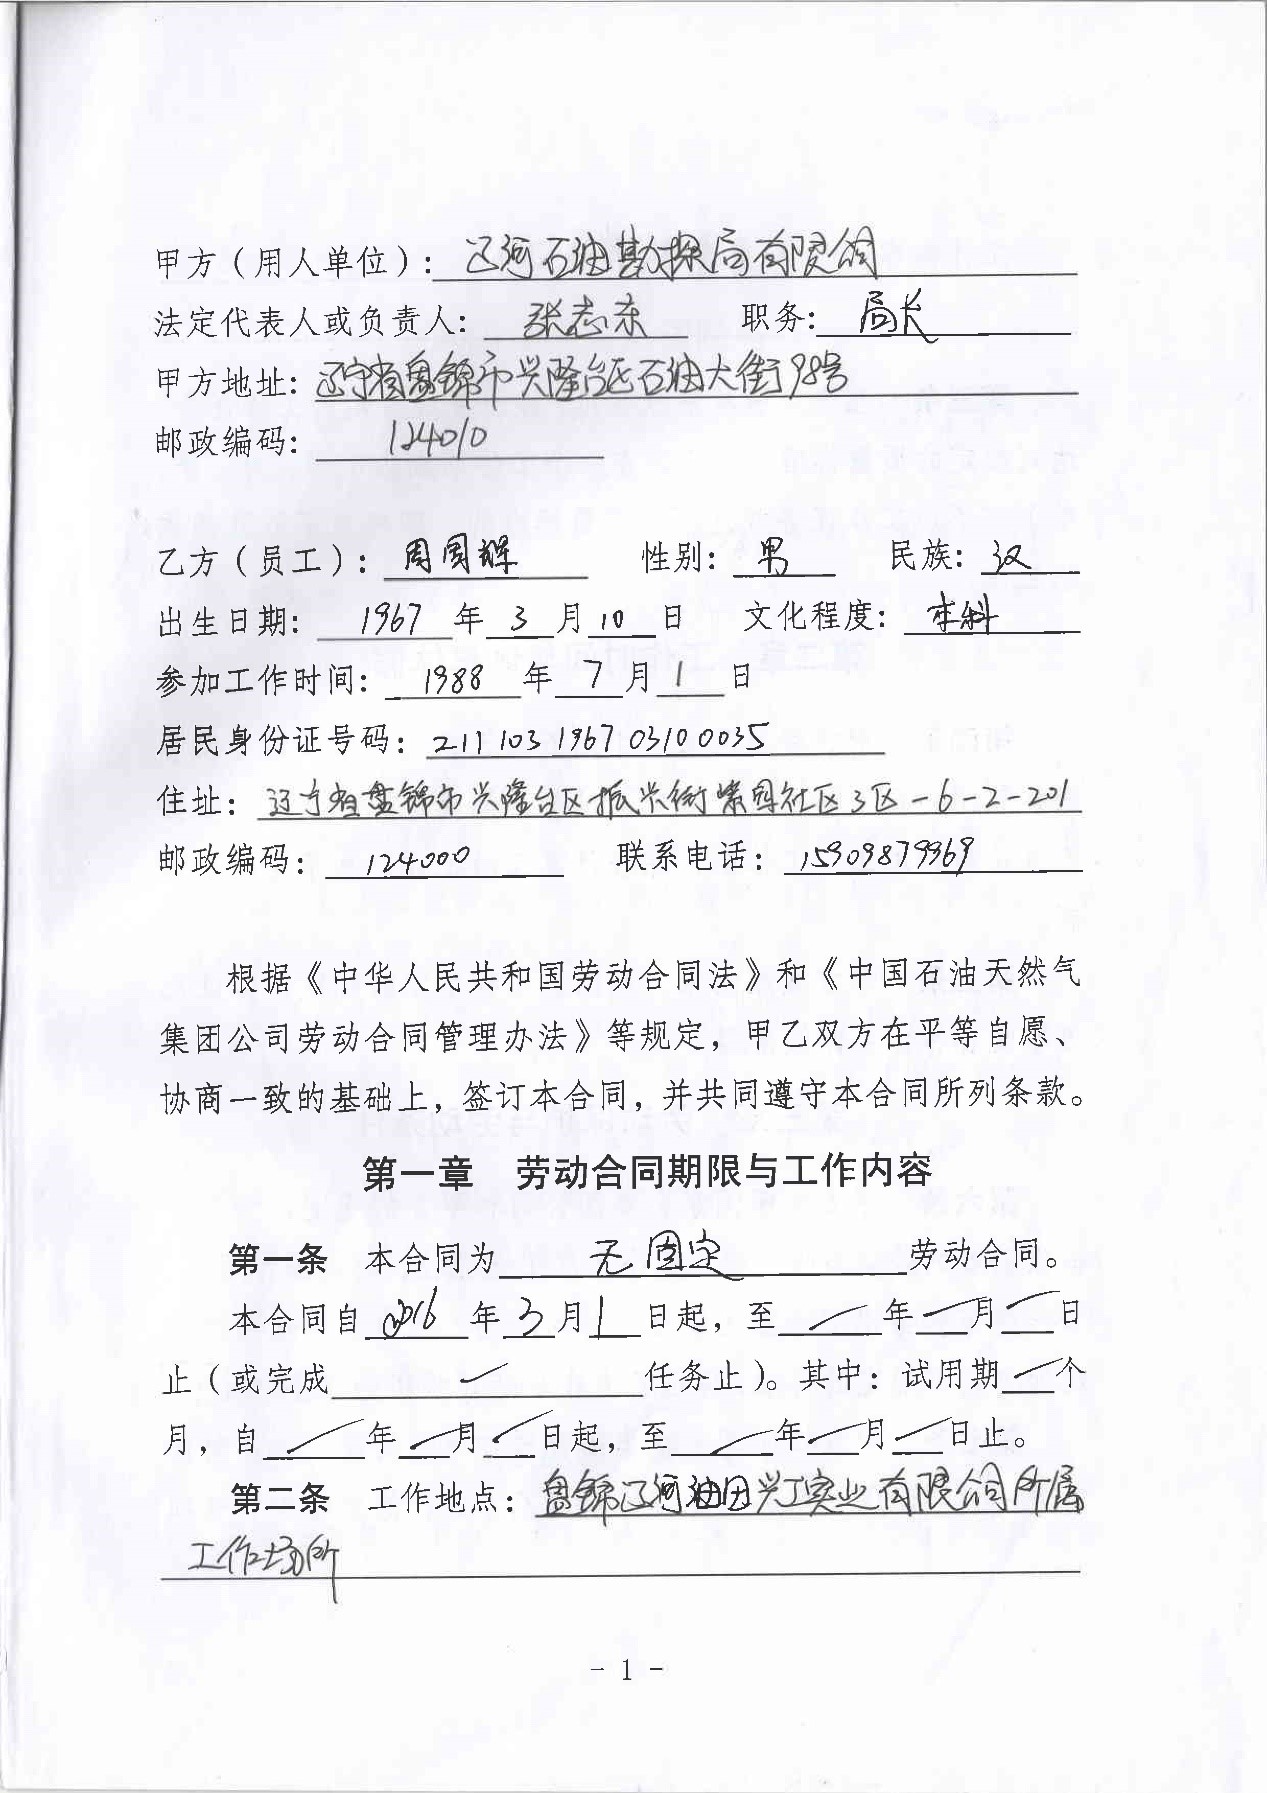 甲方（用人单位）：辽河石油勘探局有限公司
法定代表人或负责人：张志东 职务：局长
甲方地址：辽宁省盘锦市兴隆台区石油大街98号
邮政编码：124010
乙方（员工）：周国辉 性别：男 民族：汉
出生日期：1967年3月10日 文化程度：本科
参加工作时间：1988年7月1日
居民身份证号码：211103196703100035
住址：辽宁省盘锦市兴隆台区振兴街紫园社区3区-6-2-201
邮政编码：124000 联系电话：15909879969
根据《中华人民共和国劳动合同法》和《中国石油天然气
集团公司劳动合同管理办法》等规定，甲乙双方在平等自愿、
协商一致的基础上，签订本合同，并共同遵守本合同所列条款。
第一章 劳动合同期限与工作内容
第一条 本合同为无固定劳动合同。
本合同自2016年3月1日起，至／年／月／日
止（或完成／任务止）。其中：试用期／个
月，自／年／月／日起，至／年／月／日止。
第二条 工作地点：盘锦辽河油田兴工实业有限公司所属
工作场所
- 1 -